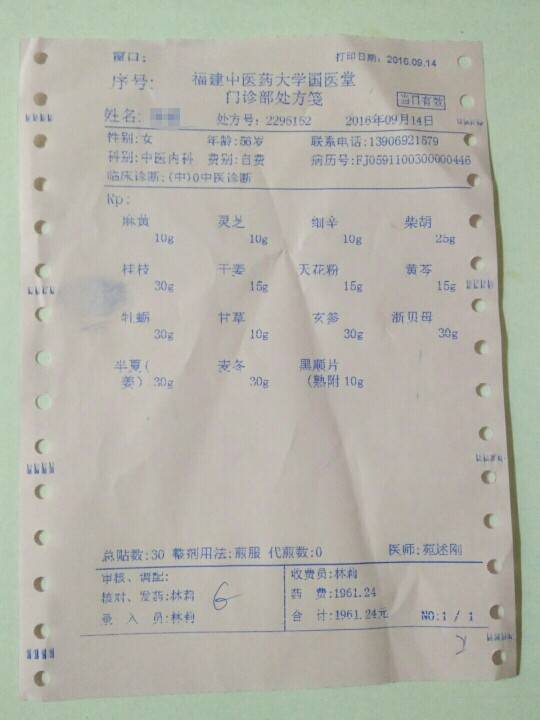 窗口: 打印日期: 2016.09.14
序号: 福建中医药大学国医堂
门诊部处方笺 当日有效
姓名: 处方号: 2295152 2016年09月14日
性别:女 年龄:56岁 联系电话:13906921579
科别:中医内科 费别:自费 病历号:FJ0591100300000446
临床诊断:(中)0中医诊断
Rp:
麻黄 灵芝 细辛 柴胡
10g 10g 10g 25g
桂枝 干姜 天花粉 黄芩
30g 15g 15g 15g
牡蛎 甘草 玄参 浙贝母
30g 10g 30g 30g
半夏( 麦冬 黑顺片
姜) 30g 30g (熟附 10g
总贴数:30 整剂用法:煎服 代煎数:0 医师:苑述刚
审核、调配: 收费员:林莉
核对、发药:林莉 药 费:1961.24
录 入 员:林莉 合 计:1961.24元 NO:1 / 1